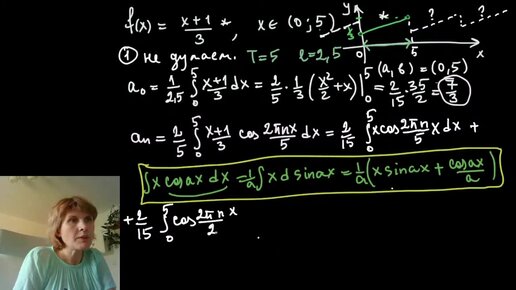 f(x) = \frac{x+1}{3} *, x ∈ (0; 5)
y * ? ?
\frac{1}{3}
0 5 x
① не думаем. T=5 ℓ=2,5 (a, b) = (0, 5)
a₀ = \frac{1}{2,5} ∫₀⁵ \frac{x+1}{3} dx = \frac{2}{5} · \frac{1}{3} (\frac{x²}{2} + x) |₀⁵ = \frac{2}{15} · \frac{35}{2} = \frac{7}{3}
aₙ = \frac{2}{5} ∫₀⁵ \frac{x+1}{3} cos \frac{2πnx}{5} dx = \frac{2}{15} ∫₀⁵ x cos \frac{2πn}{5} x dx +
∫ x cos ax dx = \frac{1}{a} ∫ x d sin ax = \frac{1}{a} (x sin ax + \frac{cos ax}{a})
+ \frac{2}{15} ∫₀⁵ cos \frac{2πn}{2} x